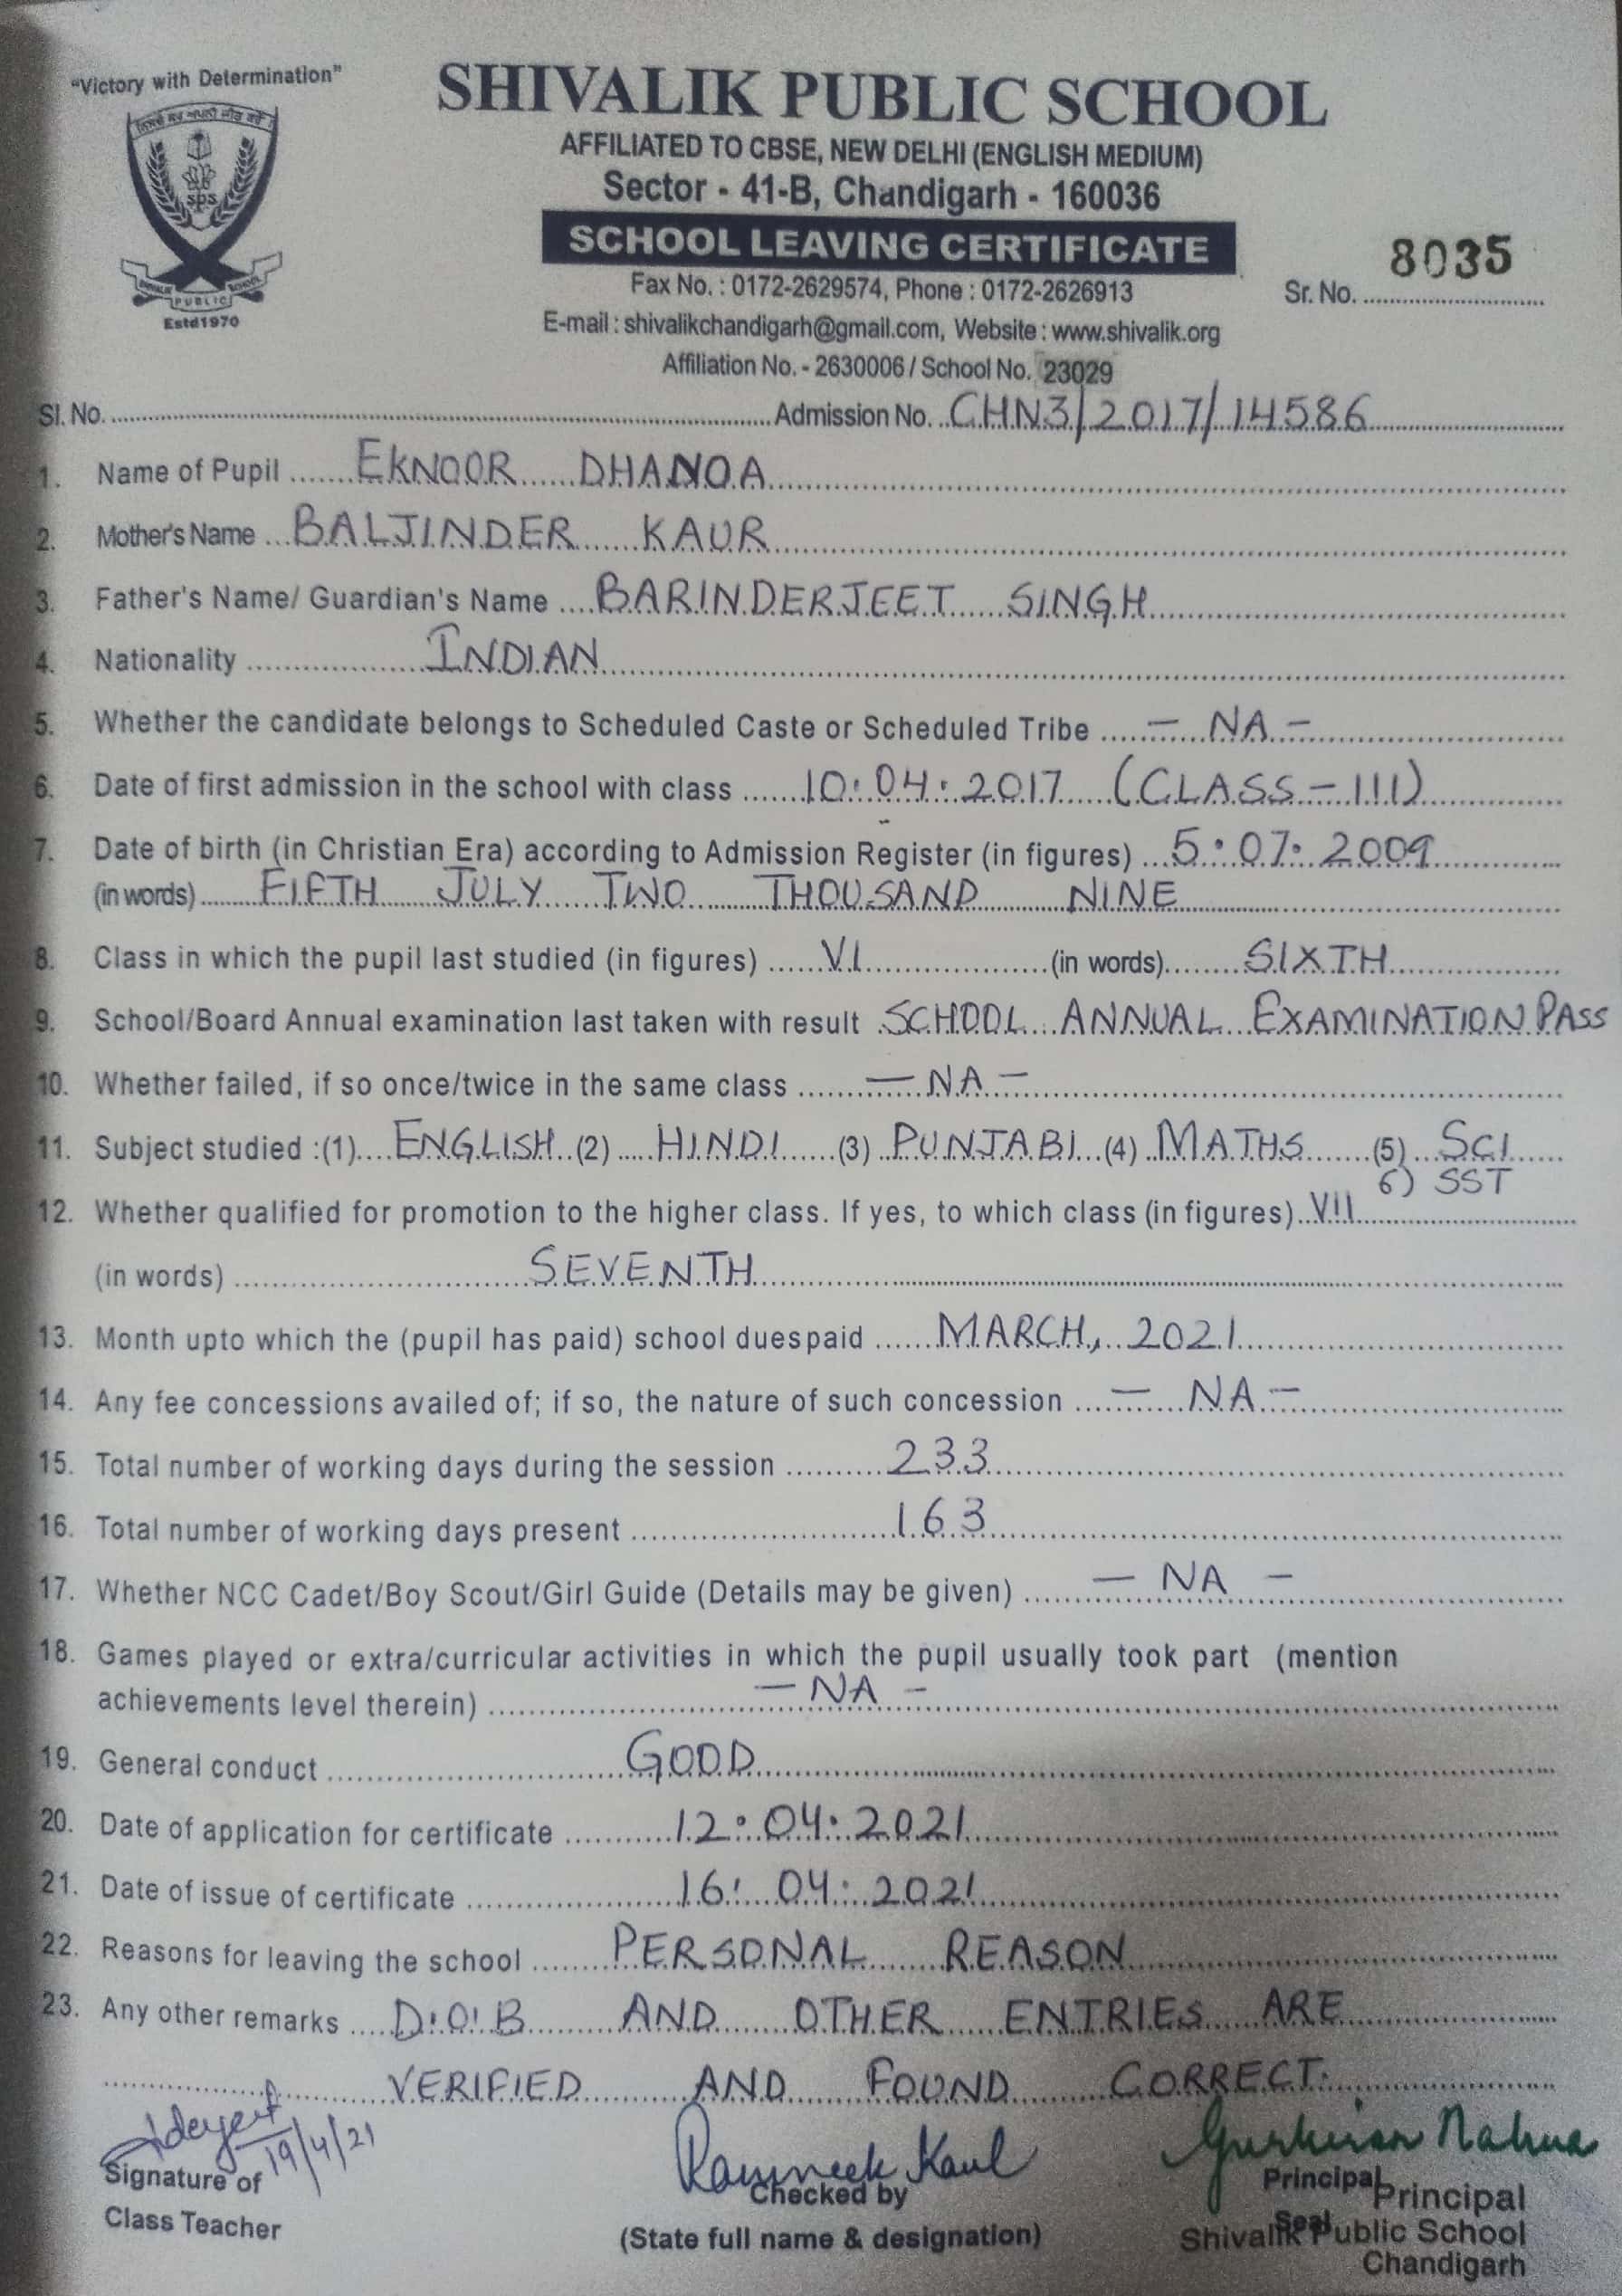 "Victory with Determination"
SHIVALIK PUBLIC SCHOOL
AFFILIATED TO CBSE, NEW DELHI (ENGLISH MEDIUM)
Sector - 41-B, Chandigarh - 160036
SCHOOL LEAVING CERTIFICATE
SPS
SHIVALIK PUBLIC SCHOOL
Estd1970
Fax No. : 0172-2629574, Phone : 0172-2626913
Sr. No. 8035
E-mail : shivalikchandigarh@gmail.com, Website : www.shivalik.org
Affiliation No. - 2630006 / School No. 23029
Sl. No. Admission No. CHN3/2017/14586
1. Name of Pupil EKNOOR DHANOA
2. Mother's Name BALJINDER KAUR
3. Father's Name/ Guardian's Name BARINDERJEET SINGH
4. Nationality INDIAN
5. Whether the candidate belongs to Scheduled Caste or Scheduled Tribe — NA —
6. Date of first admission in the school with class 10:04:2017 (CLASS - III)
7. Date of birth (in Christian Era) according to Admission Register (in figures) 5:07:2009
(in words) FIFTH JULY TWO THOUSAND NINE
8. Class in which the pupil last studied (in figures) VI (in words) SIXTH
9. School/Board Annual examination last taken with result SCHOOL ANNUAL EXAMINATION PASS
10. Whether failed, if so once/twice in the same class — NA —
11. Subject studied :(1) ENGLISH (2) HINDI (3) PUNJABI (4) MATHS (5) SCI
6) SST
12. Whether qualified for promotion to the higher class. If yes, to which class (in figures) VII
(in words) SEVENTH
13. Month upto which the (pupil has paid) school duespaid MARCH, 2021
14. Any fee concessions availed of; if so, the nature of such concession — NA —
15. Total number of working days during the session 233
16. Total number of working days present 163
17. Whether NCC Cadet/Boy Scout/Girl Guide (Details may be given) — NA —
18. Games played or extra/curricular activities in which the pupil usually took part (mention
achievements level therein) — NA —
19. General conduct GOOD
20. Date of application for certificate 12:04:2021
21. Date of issue of certificate 16:04:2021
22. Reasons for leaving the school PERSONAL REASON
23. Any other remarks D.O.B AND OTHER ENTRIES ARE
VERIFIED AND FOUND CORRECT.
19/4/21
Signature of
Class Teacher
Ramneek Kaul
Checked by
(State full name & designation)
Principal
Seal
Principal
Shivalik Public School
Chandigarh